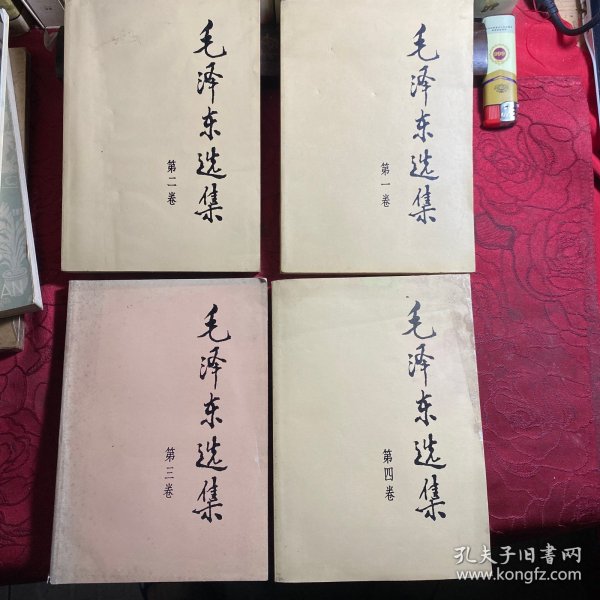 毛泽东选集
第二卷
毛泽东选集
第一卷
毛泽东选集
第三卷
毛泽东选集
第四卷
AN
孔夫子旧书网
www.kongfz.com